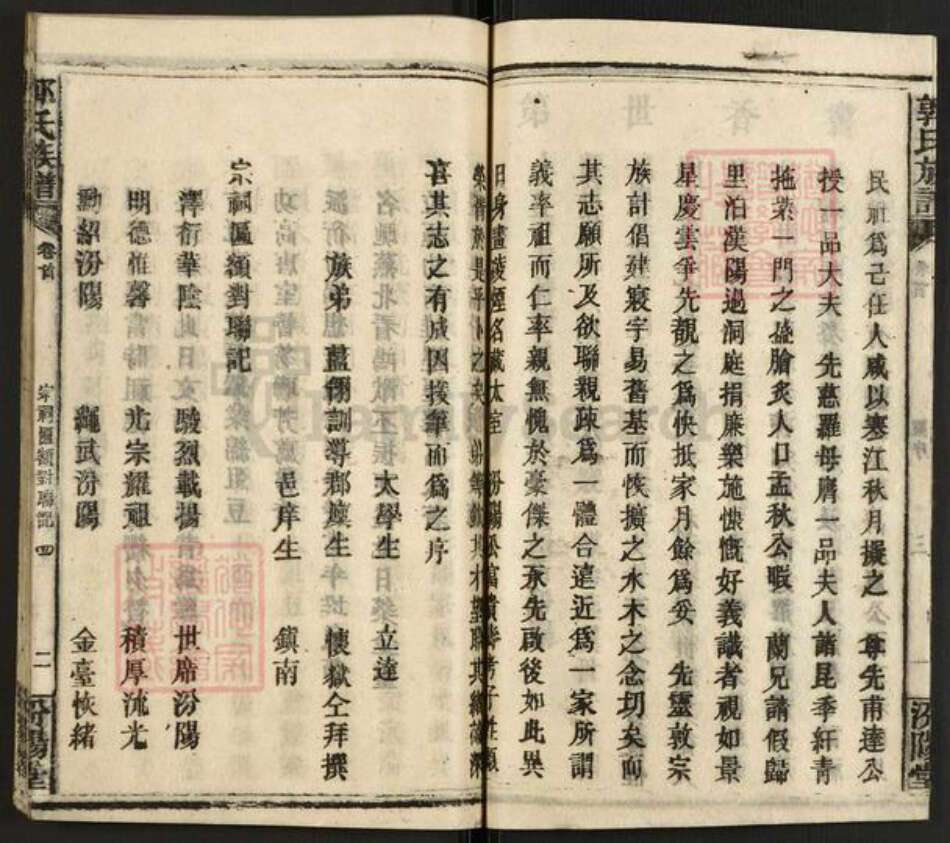 郭氏族譜
卷首
三
汾陽堂
民社爲己任人咸以寒江秋月擬之 尊先甫達公
授一品大夫 先慈羅母膺一品夫人諸昆季紆青
拖紫一門之盛膾炙人口孟秋公暇 蘭兄請假歸
里泊漢陽過洞庭捐廉樂施慷慨好義識者視如景
星慶雲爭先覩之爲快抵家月餘爲妥 先靈敦宗
族計倡建寢宇易舊基而恢擴之水木之念切矣而
其志願所及欲聯親疎爲一體合遠近爲一家所謂
義率祖而仁率親無愧於豪傑之承先啟後如此異
日身畫凌煙名藏太室 汾陽公富貴壽考子姓類
喜其志之有成因援筆而爲之序
太學生 立達
族弟 藎翎訓導郡廩生 懷嶽仝拜撰
邑庠生 鎮南
宗祠匾額對聯記
澤衍華陰 駿烈載揚 世席汾陽
明德惟馨 光宗耀祖 積厚流光
勳紹汾陽 繩武汾陽 金臺恢緒
郭氏族譜
卷首
宗祠匾額對聯記
四
二
汾陽堂
FamilySearch